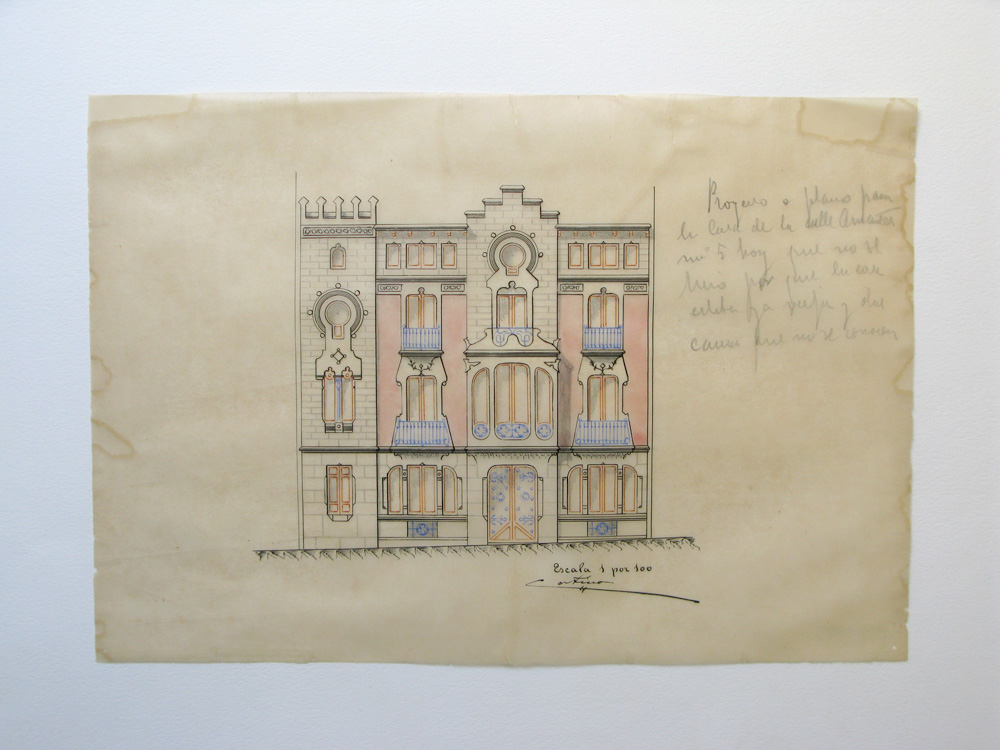 Proyecto o plano para
la Casa de la calle Amador
nº 5 hoy que no se
hizo por que la casa
estaba ya vieja y otra
causa que no se conocen
Escala 1 por 100
Cortina